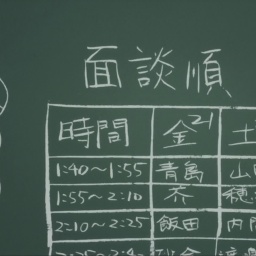 面談順
時間 金21 土
1:40〜1:55 青島 山
1:55〜2:10 芥 穂
2:10〜2:25 飯田 内